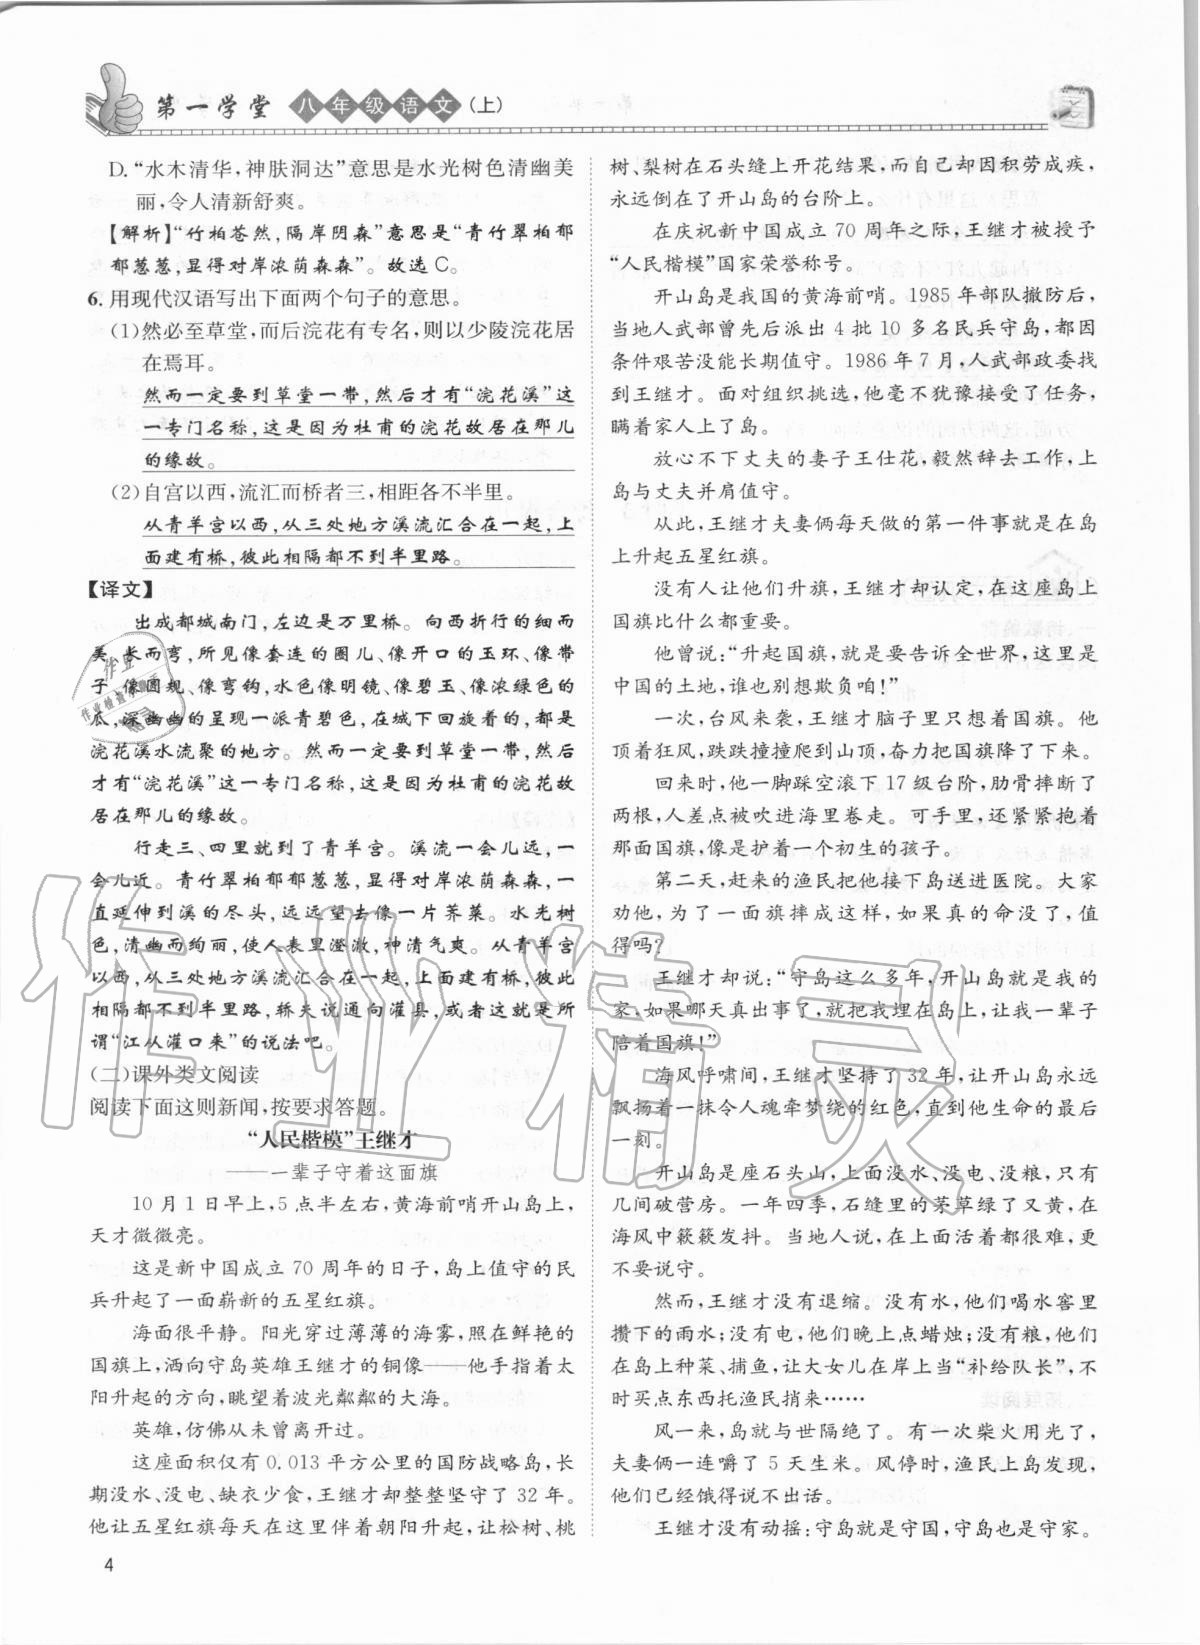 第一学堂 八年级语文(上)
D.“水木清华,神肤洞达”意思是水光树色清幽美
丽,令人清新舒爽。
【解析】“竹柏苍然,隔岸阴森”意思是“青竹翠柏郁
郁葱葱,显得对岸浓荫森森”。故选C。
6.用现代汉语写出下面两个句子的意思。
(1)然必至草堂,而后浣花有专名,则以少陵浣花居
在焉耳。
然而一定要到草堂一带,然后才有“浣花溪”这
一专门名称,这是因为杜甫的浣花故居在那儿
的缘故。
(2)自宫以西,流汇而桥者三,相距各不半里。
从青羊宫以西,从三处地方溪流汇合在一起,上
面建有桥,彼此相隔都不到半里路。
【译文】
出成都城南门,左边是万里桥。向西折行的细而
美、长而弯,所见像套连的圈儿、像开口的玉环、像带
子、像圆规、像弯钩,水色像明镜、像碧玉、像浓绿色的
瓜,深幽幽的呈现一派青碧色,在城下回旋着的,都是
浣花溪水流聚的地方。然而一定要到草堂一带,然后
才有“浣花溪”这一专门名称,这是因为杜甫的浣花故
居在那儿的缘故。
行走三、四里就到了青羊宫。溪流一会儿远,一
会儿近。青竹翠柏郁郁葱葱,显得对岸浓荫森森,一
直延伸到溪的尽头,远远望去像一片荠菜。水光树
色,清幽而绚丽,使人表里澄澈,神清气爽。从青羊宫
以西,从三处地方溪流汇合在一起,上面建有桥,彼此
相隔都不到半里路,轿夫说通向灌县,或许这就是所
谓“江从灌口来”的说法吧。
(二)课外类文阅读
阅读下面这则新闻,按要求答题。
“人民楷模”王继才
——一辈子守着这面旗
10月1日早上,5点半左右,黄海前哨开山岛上,
天才微微亮。
这是新中国成立70周年的日子,岛上值守的民
兵升起了一面崭新的五星红旗。
海面很平静。阳光穿过薄薄的海雾,照在鲜艳的
国旗上,洒向守岛英雄王继才的铜像——他手指着太
阳升起的方向,眺望着波光粼粼的大海。
英雄,仿佛从未曾离开过。
这座面积仅有0.013平方公里的国防战略岛,长
期没水、没电、缺衣少食,王继才却整整坚守了32年。
他让五星红旗每天在这里伴着朝阳升起,让松树、桃
树、梨树在石头缝上开花结果,而自己却因积劳成疾,
永远倒在了开山岛的台阶上。
在庆祝新中国成立70周年之际,王继才被授予
“人民楷模”国家荣誉称号。
开山岛是我国的黄海前哨。1985年部队撤防后,
当地人武部曾先后派出4批10多名民兵守岛,都因
条件艰苦没能长期值守。1986年7月,人武部政委找
到王继才。面对组织挑选,他毫不犹豫接受了任务,
瞒着家人上了岛。
放心不下丈夫的妻子王仕花,毅然辞去工作,上
岛与丈夫并肩值守。
从此,王继才夫妻俩每天做的第一件事就是在岛
上升起五星红旗。
没有人让他们升旗,王继才却认定,在这座岛上
国旗比什么都重要。
他曾说:“升起国旗,就是要告诉全世界,这里是
中国的土地,谁也别想欺负咱!”
一次,台风来袭,王继才脑子里只想着国旗。他
顶着狂风,跌跌撞撞爬到山顶,奋力把国旗降了下来。
回来时,他一脚踩空滚下17级台阶,肋骨摔断了
两根,人差点被吹进海里卷走。可手里,还紧紧抱着
那面国旗,像是护着一个初生的孩子。
第二天,赶来的渔民把他接下岛送进医院。大家
劝他,为了一面旗摔成这样,如果真的命没了,值
得吗?
王继才却说:“守岛这么多年,开山岛就是我的
家,如果哪天真出事了,就把我埋在岛上,让我一辈子
陪着国旗!”
海风呼啸间,王继才坚持了32年,让开山岛永远
飘扬着一抹令人魂牵梦绕的红色,直到他生命的最后
一刻。
开山岛是座石头山,上面没水、没电、没粮,只有
几间破营房。一年四季,石缝里的茅草绿了又黄,在
海风中簌簌发抖。当地人说,在上面活着都很难,更
不要说守。
然而,王继才没有退缩。没有水,他们喝水窖里
攒下的雨水;没有电,他们晚上点蜡烛;没有粮,他们
在岛上种菜、捕鱼,让大女儿在岸上当“补给队长”,不
时买点东西托渔民捎来……
风一来,岛就与世隔绝了。有一次柴火用光了,
夫妻俩一连嚼了5天生米。风停时,渔民上岛发现,
他们已经饿得说不出话。
王继才没有动摇:守岛就是守国,守岛也是守家。
4
作业精灵